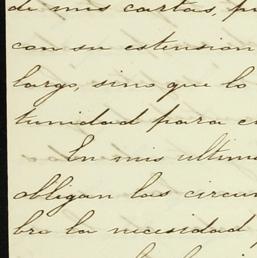 de mis cartas, p
con su estension
largo, sino que lo
tunidad para c
En mis ultim
obligan las circun
bre la necesidad